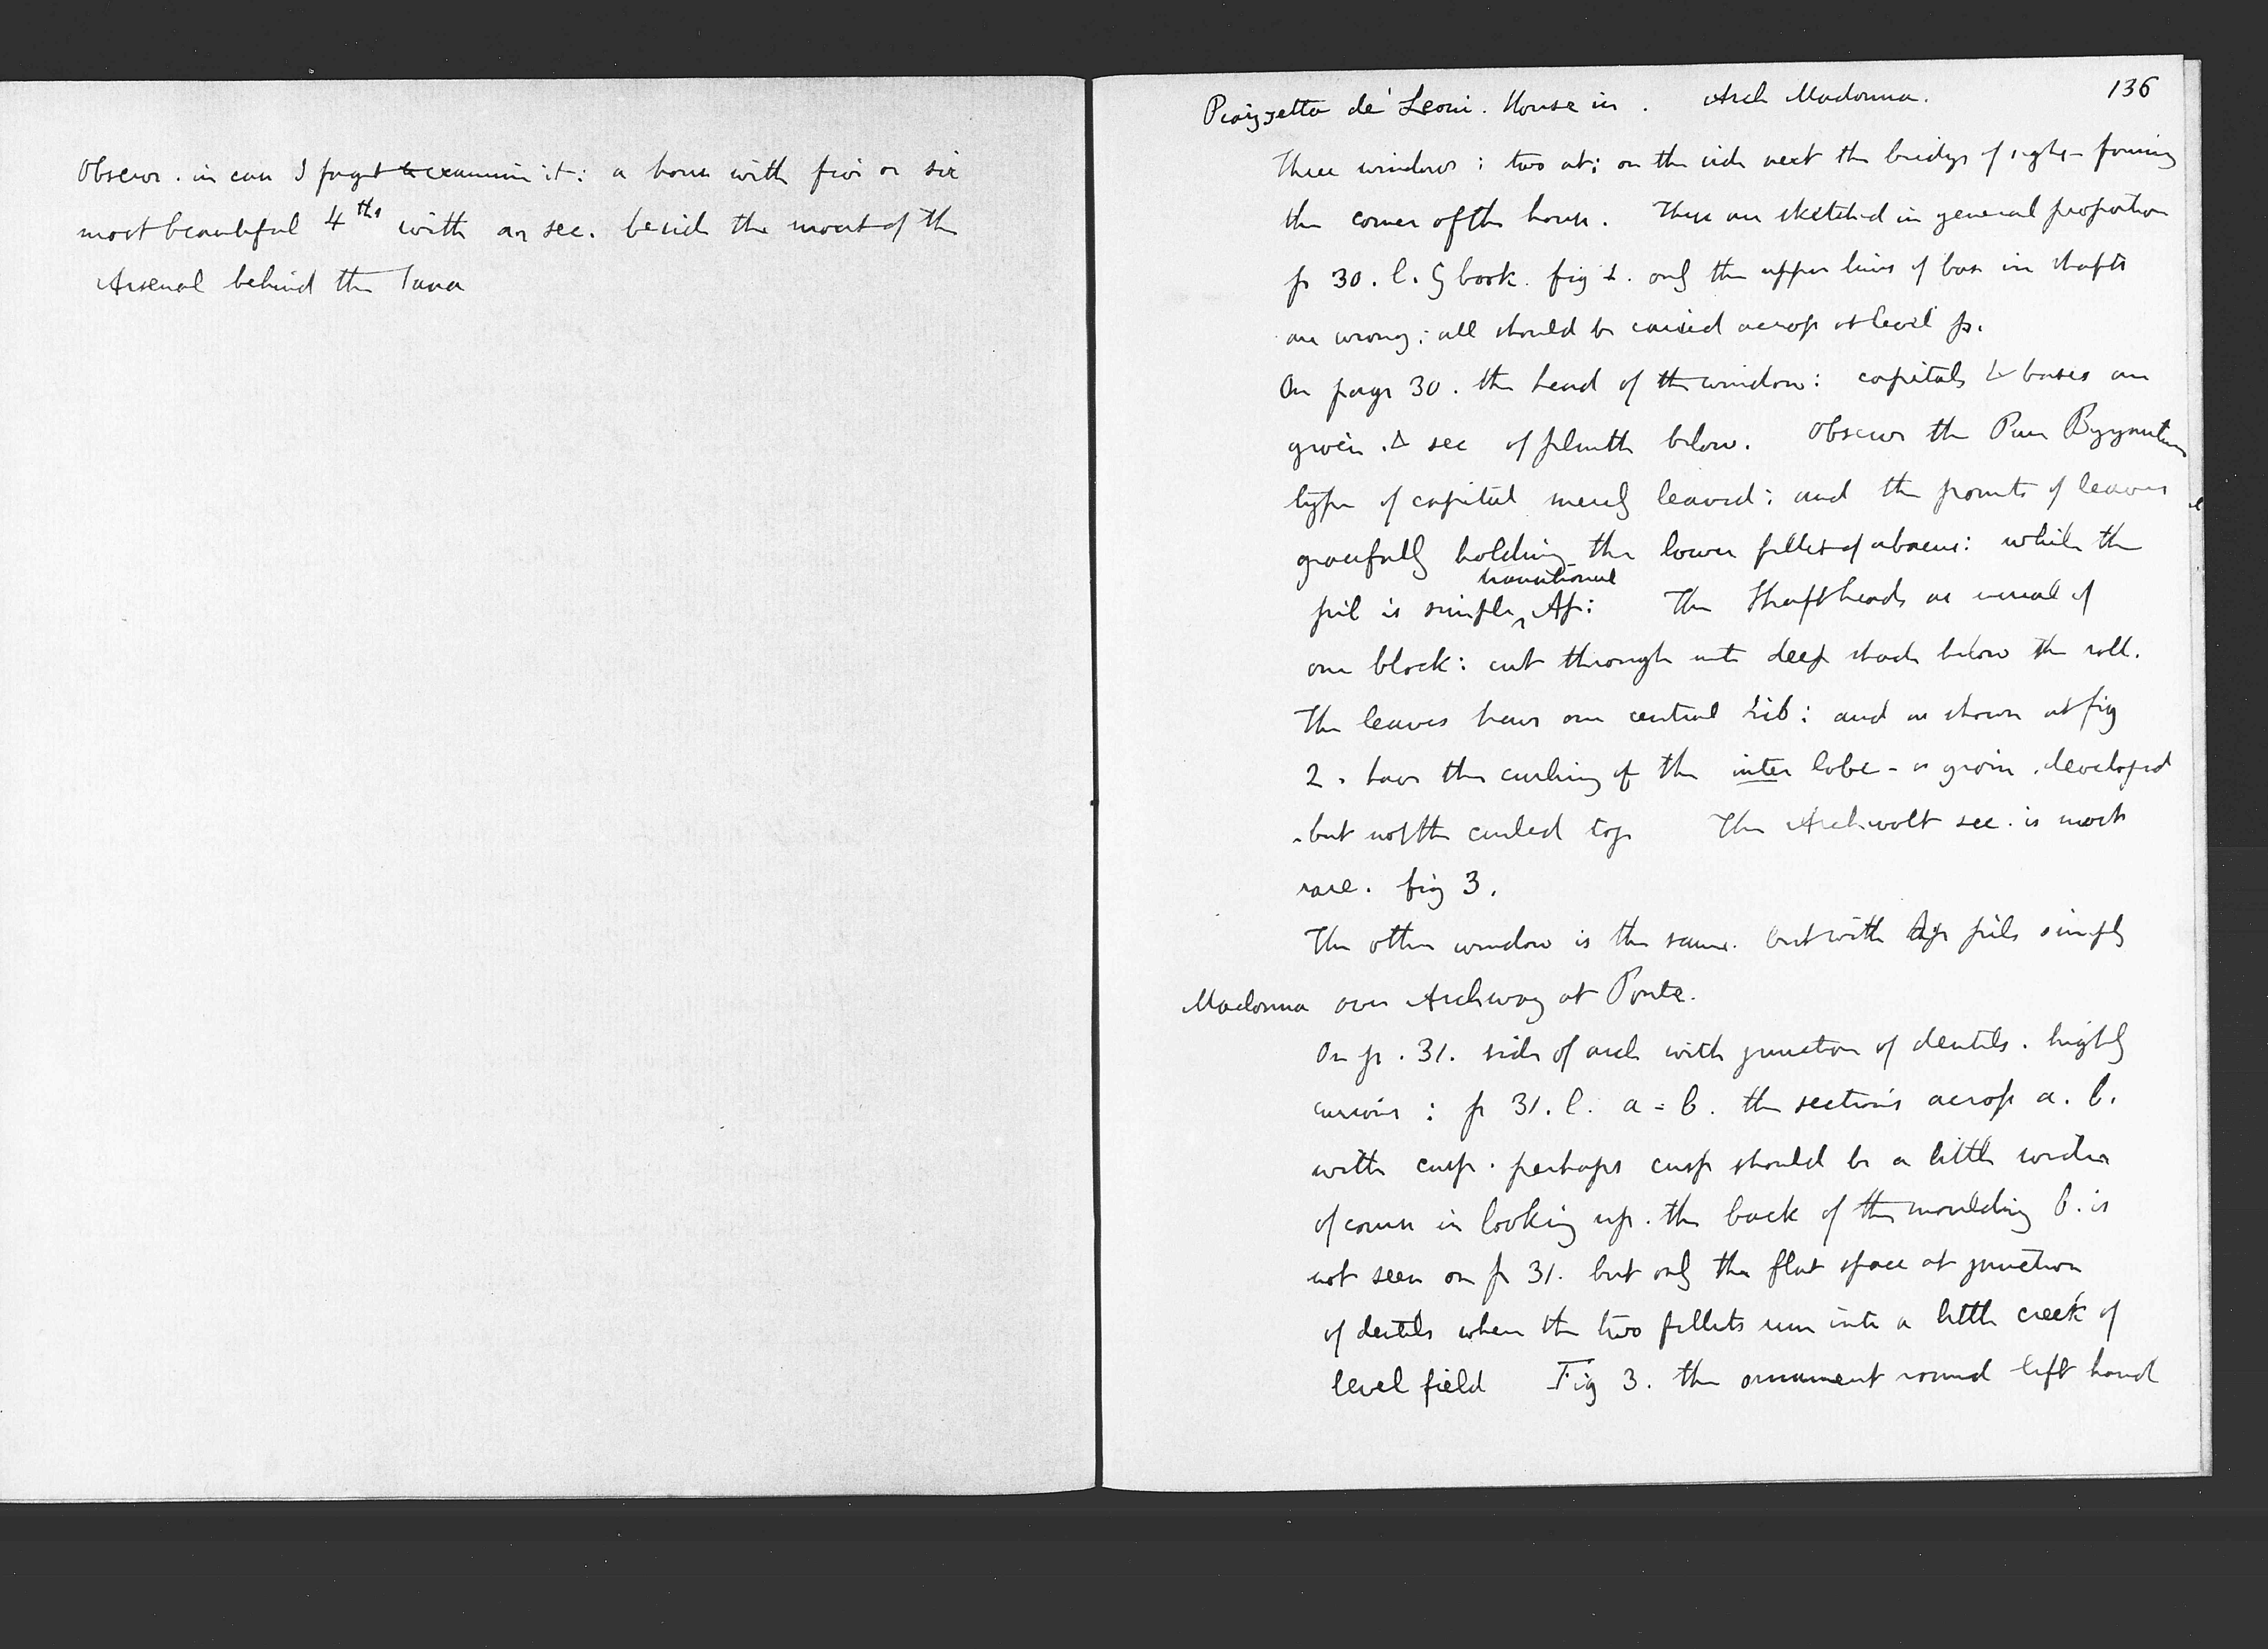 Observe. in case I forget to examine it: a house with five or six
most beautiful 4ths with an sec. beside the moat of the
Arsenal behind the Tana
136
Piazzetta de' Leoni. House in. Arch Madonna.
Three windows: two at: on the side next the bridge of sighs - forming
the corner of the house. These are sketched in general proportion
p 30. l. G book. fig 1. only the upper lines of base in shafts
are wrong: all should be carried across at level p.
On page 30. the head of the window: capitals & bases are
given. & sec of plinth below. Observe the Pure Byzantine
type of capital merely leaved: and the points of leaves
gracefully holding the lower fillet of abacus: while the
pil is simple, transitional Ap: The Shaft heads as usual of
one block: cut through into deep shade below the roll.
The leaves have one central rib: and as shown at fig
2. have the curling of the inter lobe - is given. developed
but not the curled top The Archivolt sec. is most
rare. fig 3.
The other window is the same. but with pils simply
Madonna over Archway at Ponte.
On p. 31. side of arch with junction of dentils. highly
curious: p 31. l. a = b. the sections across a. b.
with cusp. perhaps cusp should be a little wider
of course in looking up. the back of the moulding b. is
not seen on p 31. but only the flat space at junction
of dentils where the two fillets run into a little creek of
level field Fig 3. the ornament round left hand